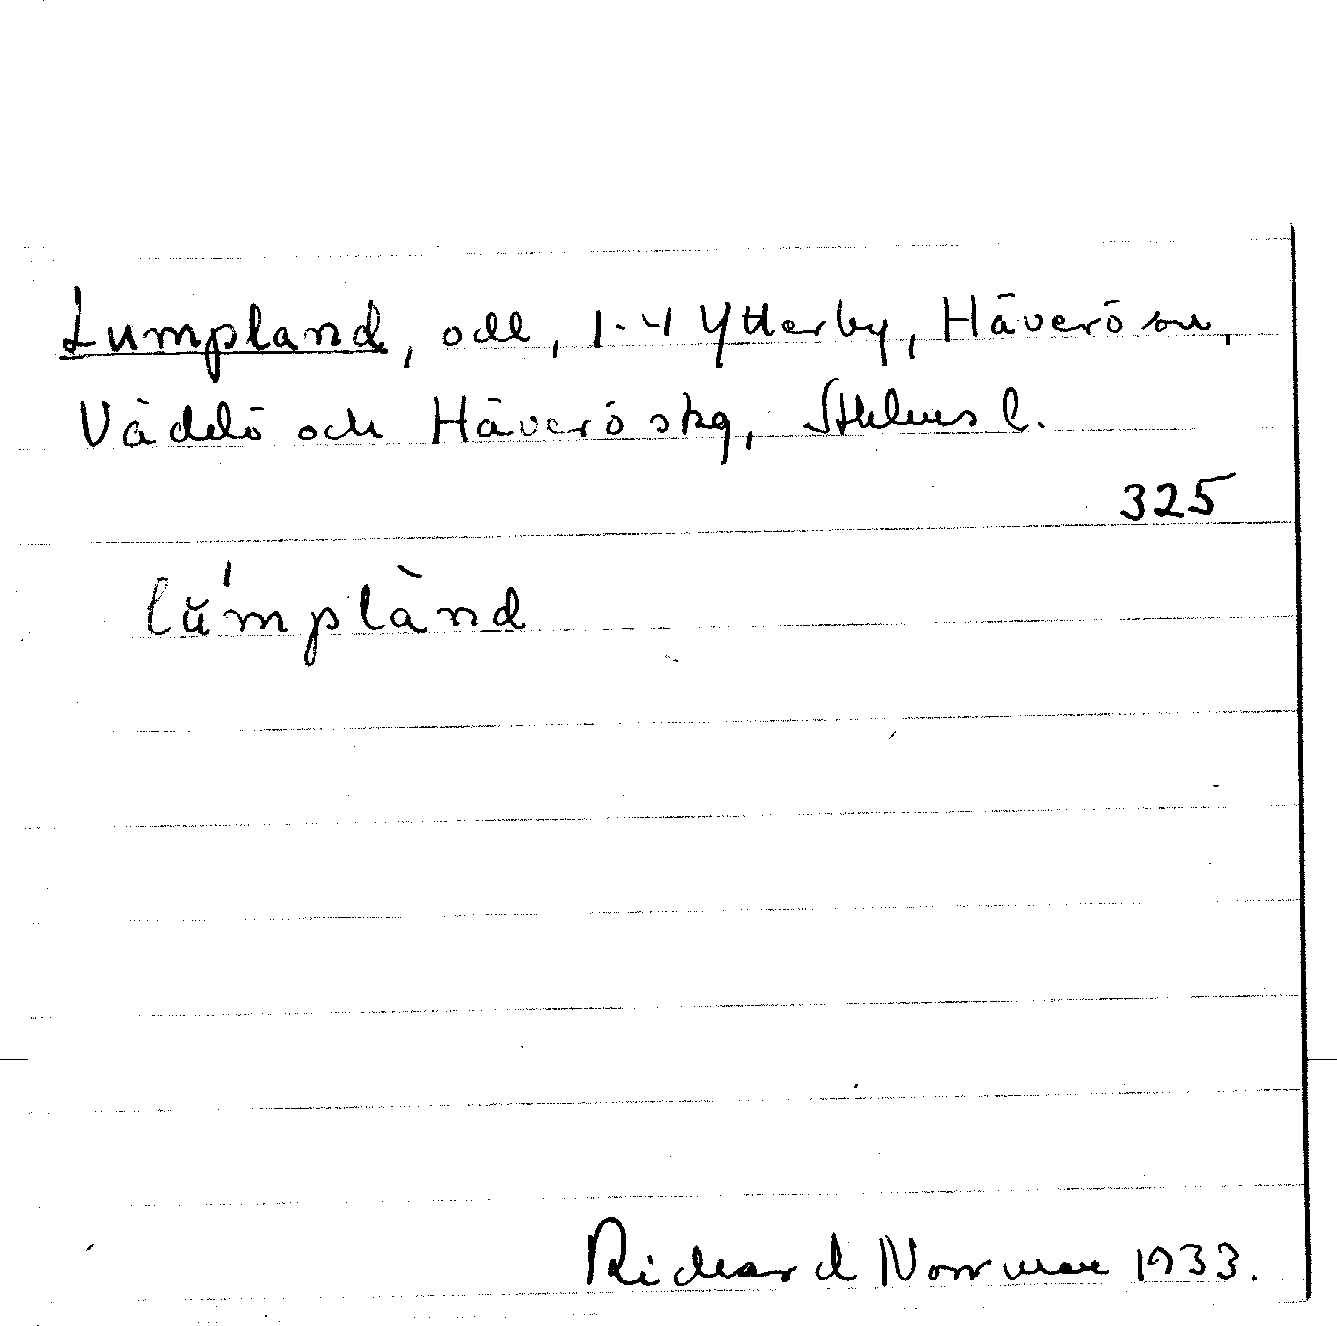 Lumpland, odl, 1-4 Ytterby, Häverö sn,
Väddö och Häverö skg, Sthlms l.
325
lŭ́mplànd
Richard Norrman 1933.